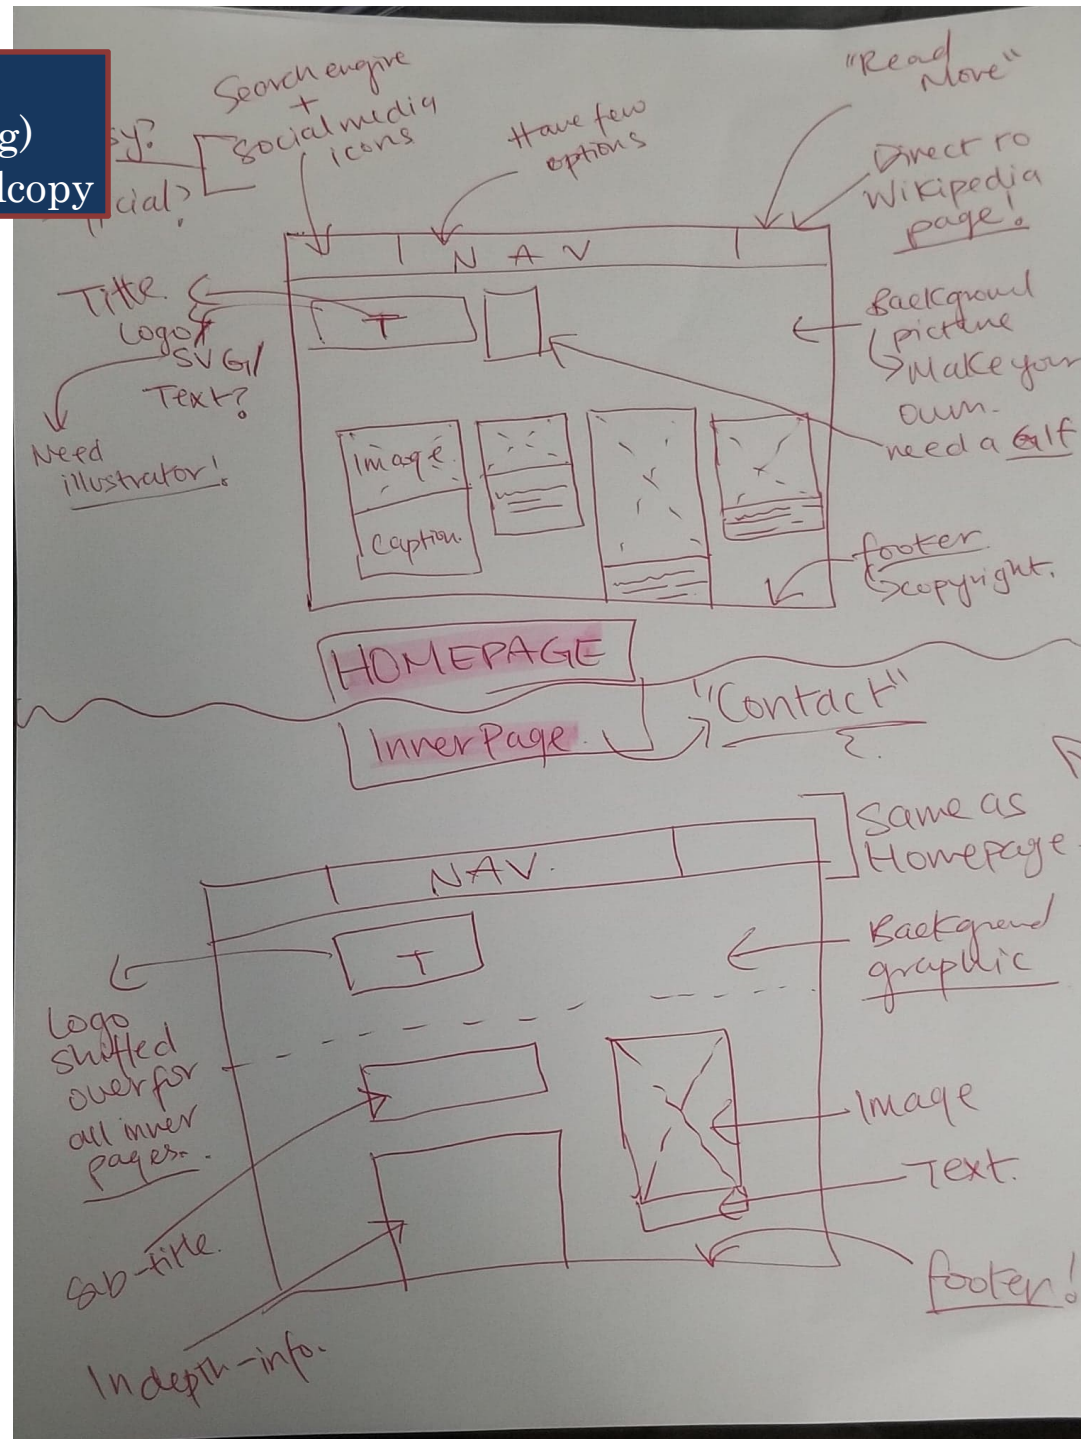 g)
lcopy
sy?
cial?
Search engine
+
social media
icons
Have few
options
"Read
More"
Direct to
Wikipedia
page!
N A V
Title
Logo/
SVG/
Text?
T
Need
illustrator!
Background
picture
Make your
own.
need a GIf
Image
Caption.
footer
copyright.
HOMEPAGE
Inner Page.
"Contact"
?
Same as
Homepage
NAV.
T
Background
graphic
Logo
shifted
over for
all inner
pages.
Image
Text.
Sub-title.
footer!
In depth-info.